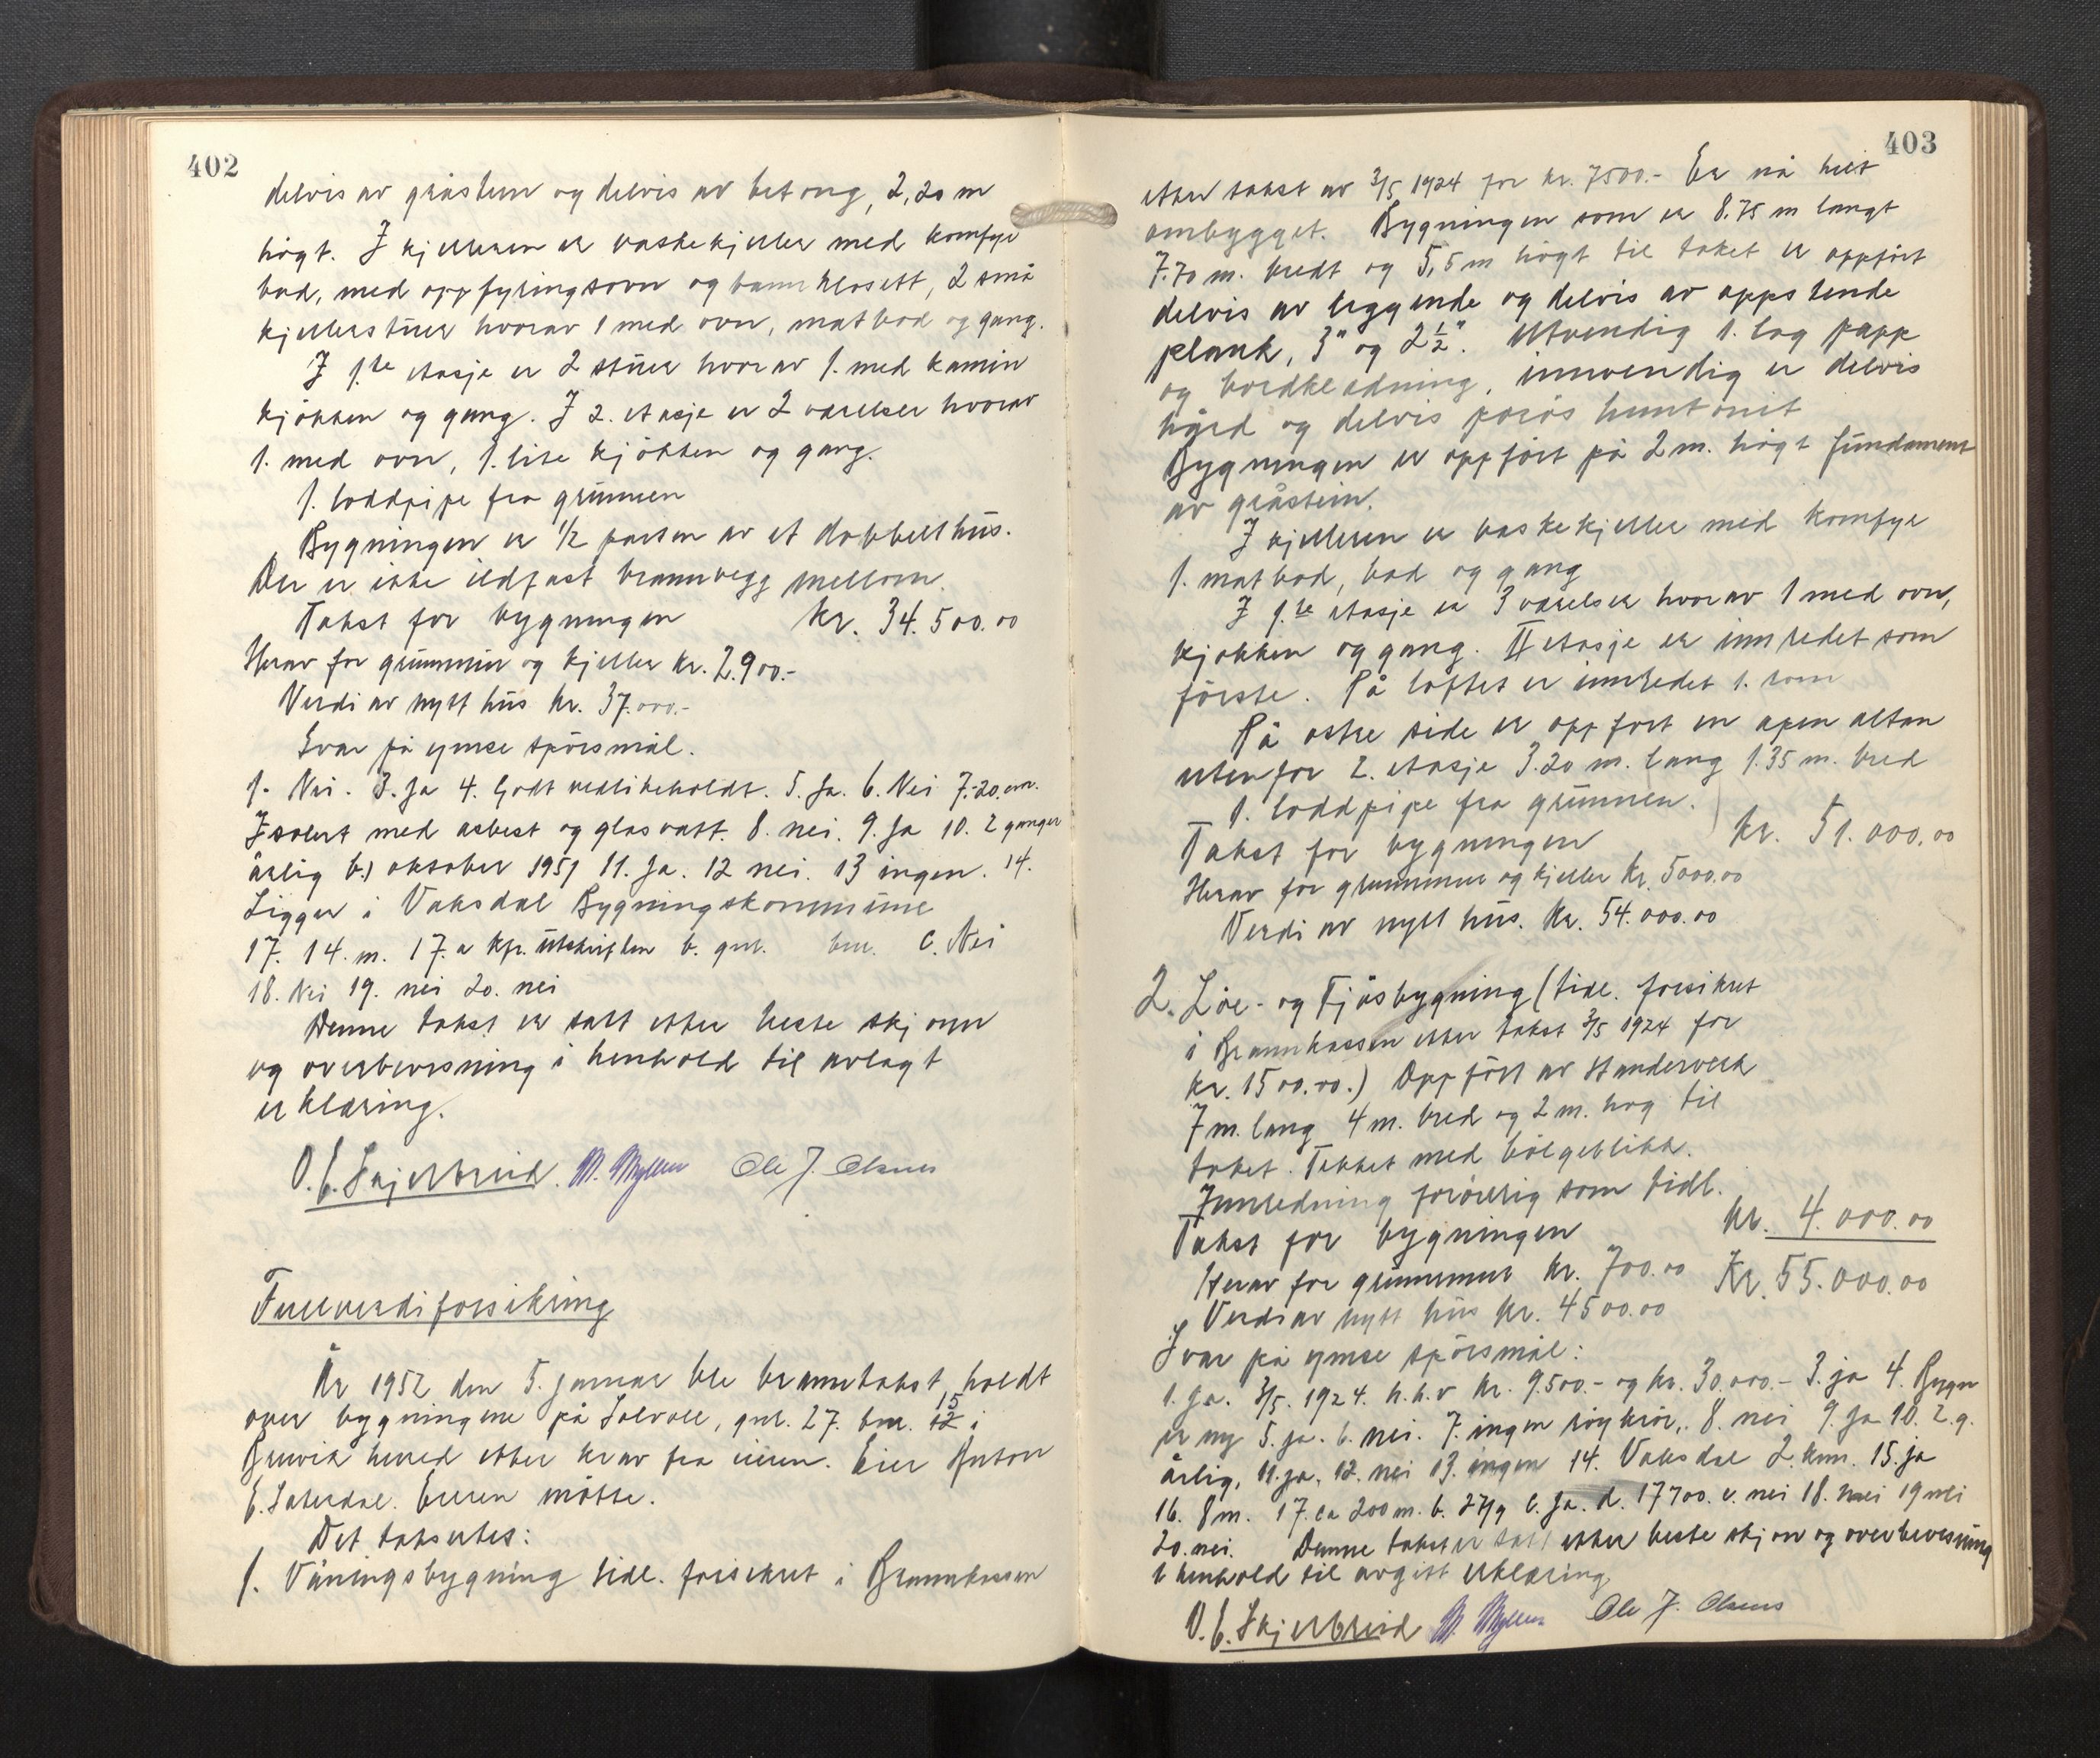 402
delvis av gråstein og delvis av betong, 2,20 m
högt. I kjelleren er vaskekjeller med komfyr
bad, med oppfyringsovn og vannklosett, 2 små
kjellerstuer hvorav 1 med ovn, matbod og gang.
I 1.ste etasje er 2 stuer hvorav 1. med kamin
kjökken og gang. I 2. etasje er 2 værelser hvorav
1. med ovn, 1. lite kjökken og gang.
1. loddpipe fra grunnen
Bygningen er 1/2 parten av et dobbelthus.
Der er ikke ildfast brannvegg mellom.
Takst for bygningen kr. 34.500.00
Herav for grunnmur og kjeller kr. 2.900.-
Verdi av nytt hus kr. 37.000.-
Svar på ymse spörsmål.
1. Nei. 3. Ja 4. Godt vedlikeholdt. 5. Ja. 6. Nei 7. 20 cm.
Isolert med asbest og glasvatt. 8. nei. 9. Ja 10. 2 ganger
årlig b.) oktober 1951 11. Ja. 12 nei. 13 ingen. 14.
Ligger i Vaksdal Bygningskommune
17. 14. m. 17. a kfr. utskriften b. gnr. bnr. c. Nei
18. Nei 19. nei 20. nei
Denne takst er satt etter beste skjönn
og overbevisning i henhold til avlagt
erklæring.
O. E. Skjelbreid. M. Myllen Ole J. Olsnes
Fullverdiforsikring
År 1952 den 5. januar ble branntakst holdt
15
over bygningene på Solvoll, gnr. 27. bnr. 12 i
Bruvik herred etter krav fra eieren. Eier Anton
E. Sæterdal. Eieren mötte.
Det takseres:
1. Våningsbygning tidl. forsikret i Brannkassen
403
etter takst av 3/5 1924 for kr. 7500.- Er nå helt
ombygget. Bygningen som er 8.75 m langt
7.70 m. bredt og 5,5 m högt til taket er oppfört
delvis av liggende og delvis av oppstende
plank, 3" og 2 1/2". Utvendig 1. lag papp
og bordkledning, innvendig er delvis
hård og delvis porös huntonit
Bygningen er oppfört på 2 m. högt fundament
av gråstein.
I kjelleren er vaskekjeller med komfyr
1. matbod, bad og gang
I 1.ste etasje er 3 værelser hvorav 1 med ovn,
kjøkken og gang. II etasje er innredet som
förste. På loftet er innredet 1. rom
På østre side er oppført en åpen altan
utenfor 2. etasje 3.20 m. lang 1.35 m. bred
1. loddpipe fra grunnen.
Takst for bygningen kr. 51.000.00
Herav for grunnmur og kjeller kr. 5000.00
Verdi av nytt hus. kr. 54.000.00
2. Löe- og Fjösbygning (tidl. forsikret
i Brannkassen etter takst 3/5 1924 for
kr. 1500.00.) Oppfört av standerverk
7 m. lang 4 m. bred og 2 m. høg til
taket. Tekket med bölgeblikk.
Innredning foröverig som tidl.
Takst for bygningen kr. 4.000.00
Herav for grunnmur kr. 700.00 Kr. 55.000.00
Verdi av nytt hus kr. 4500.00
Svar på ymse spörsmål:
1. Ja. 3/5. 1924. h.h.v kr. 9.500.- og kr. 30.000.- 3. ja 4. Bygn
er ny 5. ja. 6. nei. 7. ingen röykrör, 8. nei 9. Ja 10. 2. g.
årlig, 11. ja, 12. nei 13. ingen 14. Vaksdal 2. km. 15. ja
16. 8 m. 17. ca 200 m. b. 27/9 c. Ja. d. 17700. e. nei 18. nei 19 nei
20. nei. Denne takst er satt etter beste skjønn og overbevisning
i henhold til avgitt erklæring
O. E. Skjelbreid M. Myllen Ole J. Olsnes